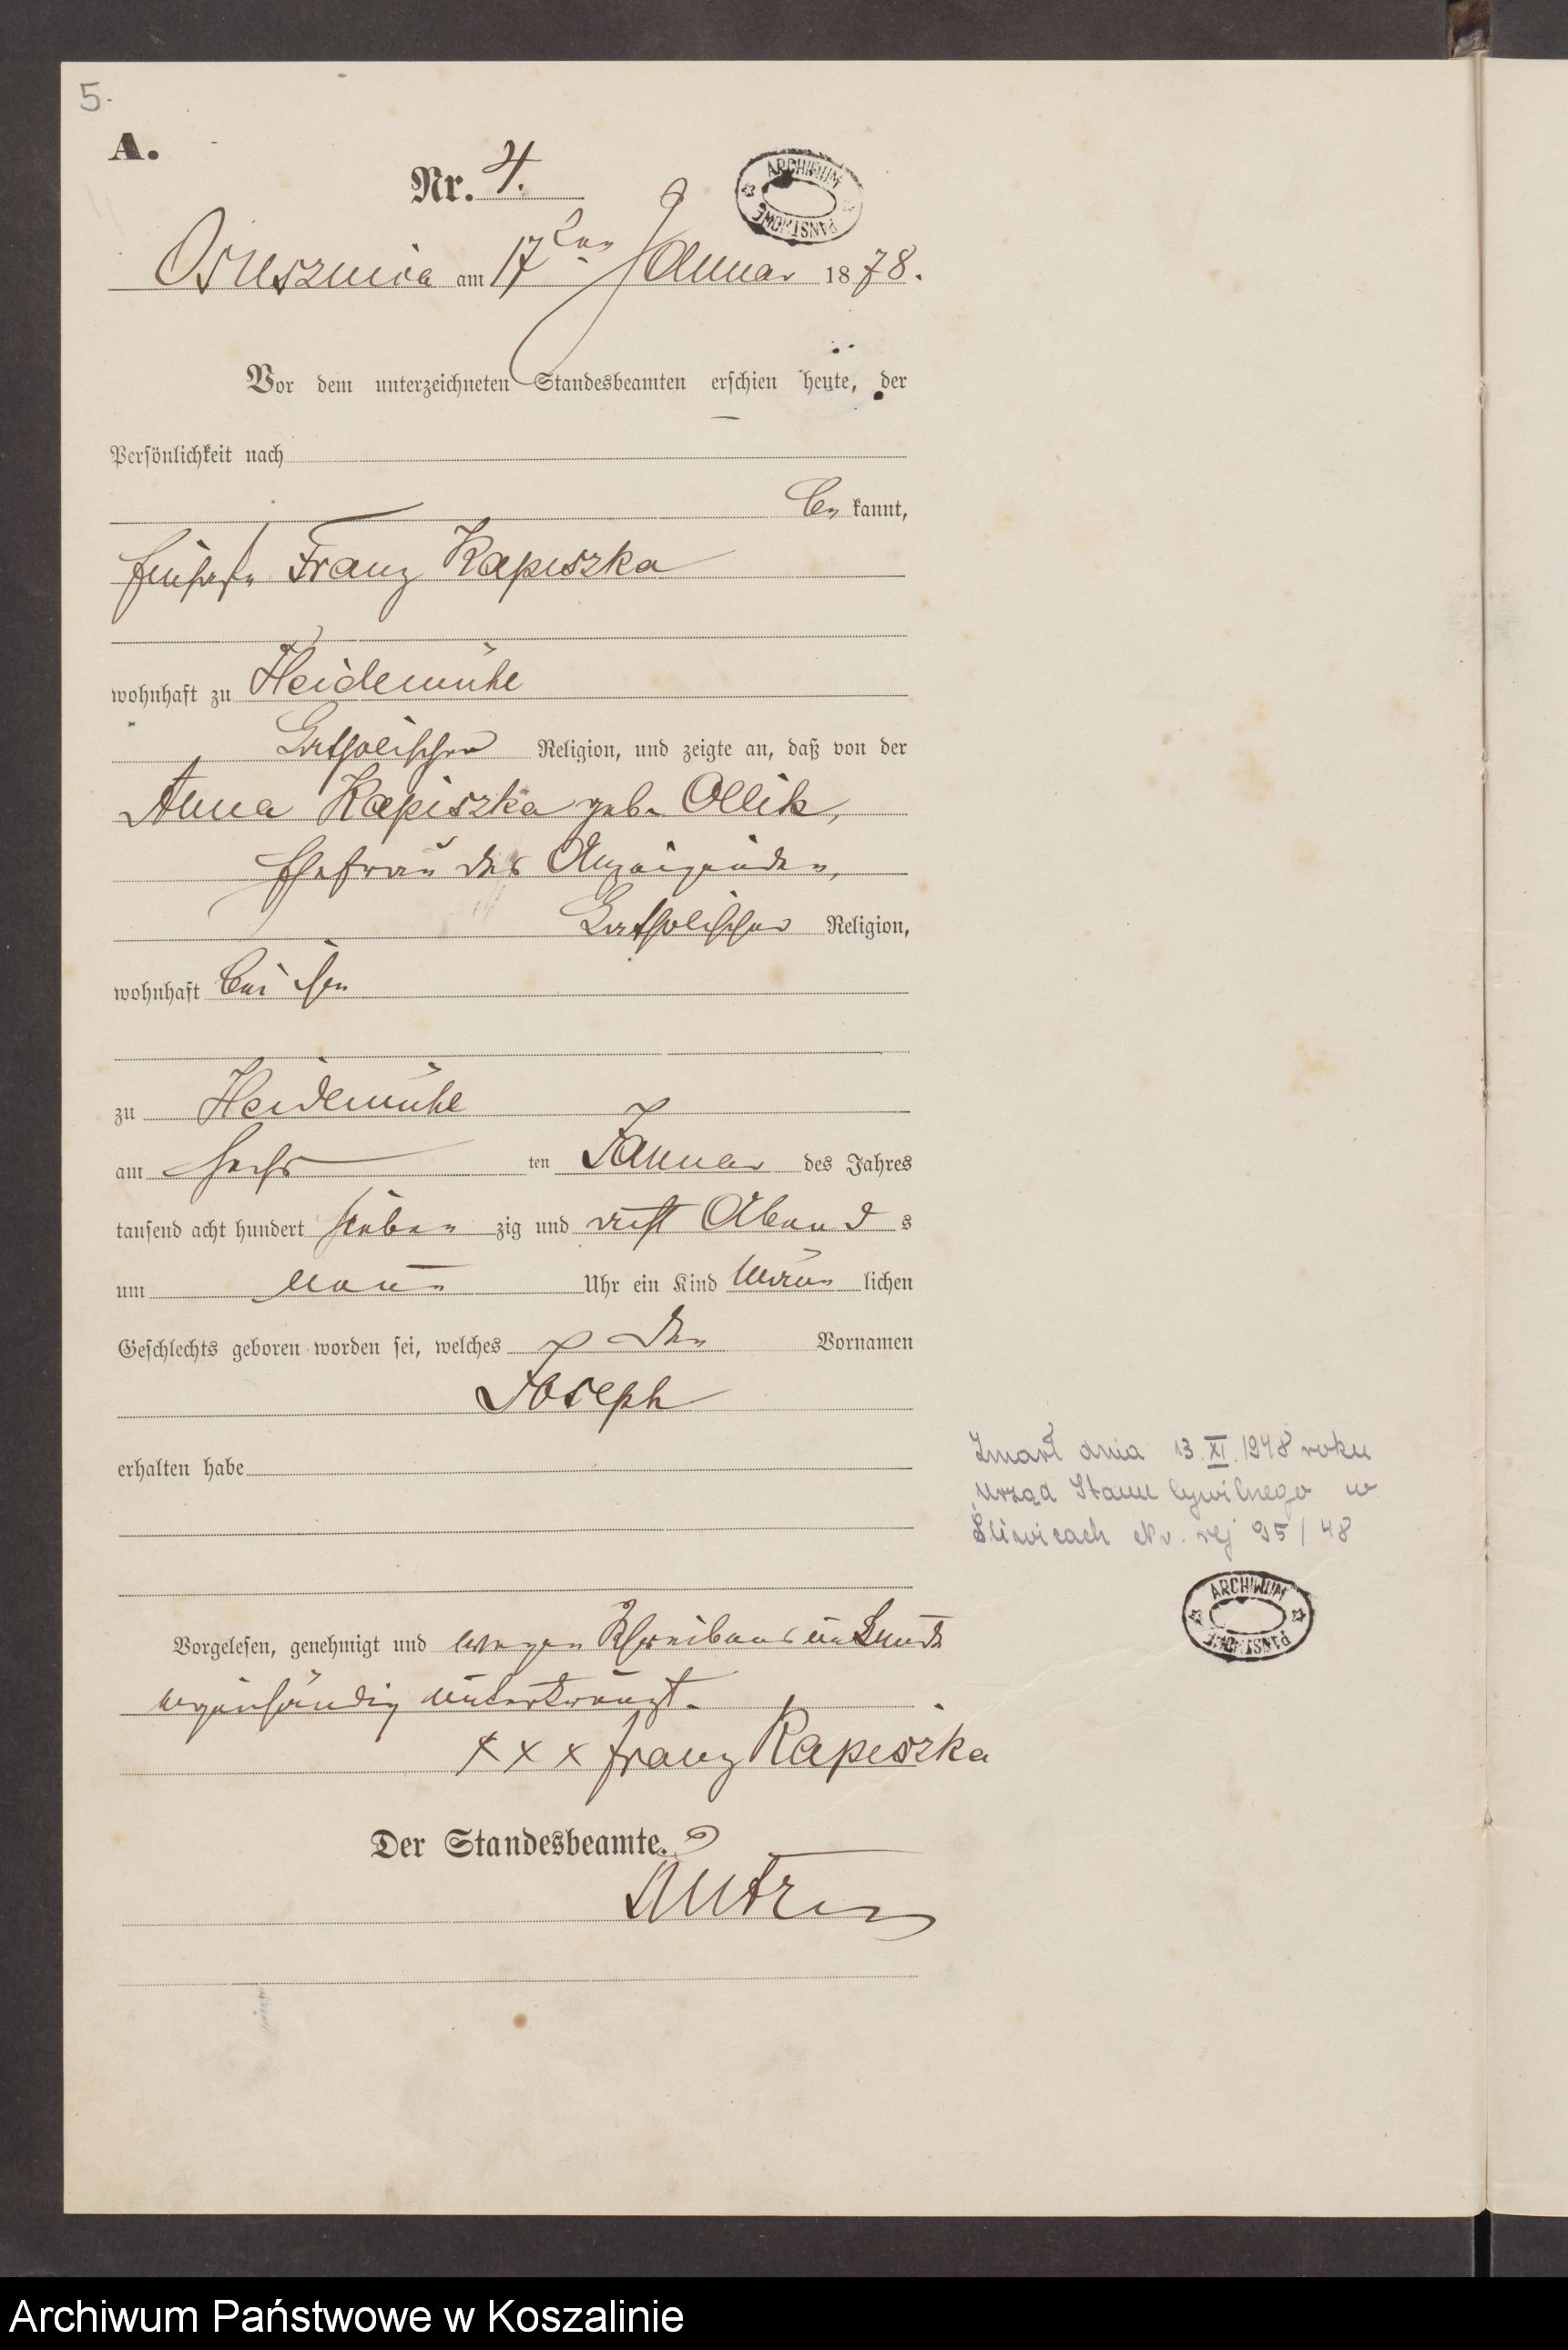 5.
A.
Nr. 4.
ARCHIWUM PAŃSTWOWE
Osusznica am 17ten Januar 1878.
Vor dem unterzeichneten Standesbeamten erschien heute, der
Persönlichkeit nach
be kannt,
Franz Kapiszka
wohnhaft zu Heidemühl
Catholischer Religion, und zeigte an, daß von der
Anna Kapiszka geb. Ollik,
Ehefrau des Anzeigenden,
Catholischer Religion,
wohnhaft bei ihm
zu Heidemühl
am sechs ten Januar des Jahres
tausend acht hundert sieben zig und acht Abend s
um neun Uhr ein Kind männ lichen
Geschlechts geboren worden sei, welches den Vornamen
Joseph
erhalten habe
Zmarł dnia 13.XI.1948 roku
Urząd Stanu Cywilnego w
Śliwicach Nr. rej 95/48
ARCHIWUM PAŃSTWOWE
Vorgelesen, genehmigt und wegen Schreibens unkunde
eigenhändig unterkreuzt.
x x x Franz Kapiszka
Der Standesbeamte.
Archiwum Państwowe w Koszalinie